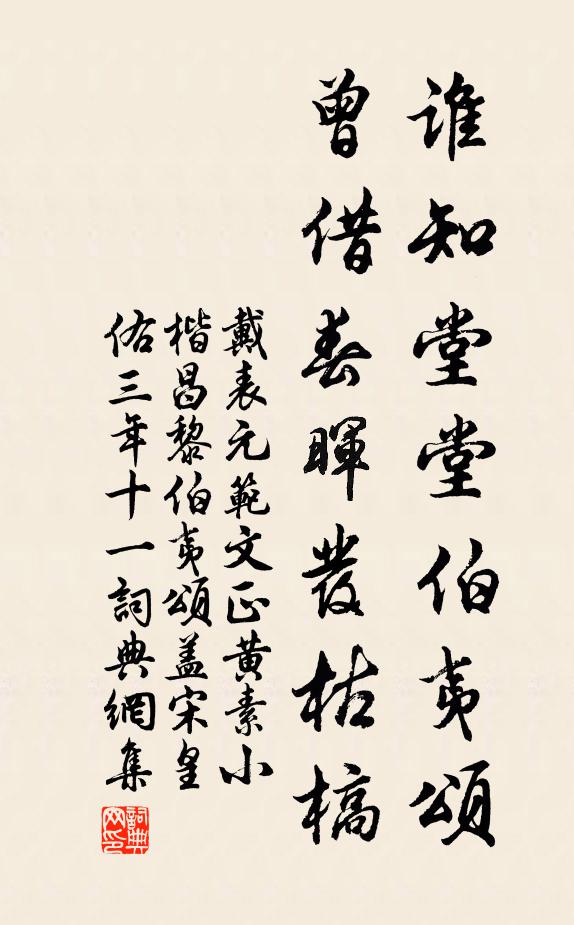 誰知堂堂伯夷頌
曾借春暉發枯槁
戴表元範文正黃素小
楷昌黎伯夷頌蓋宋皇
佑三年十一詞典網集
詞典
网印